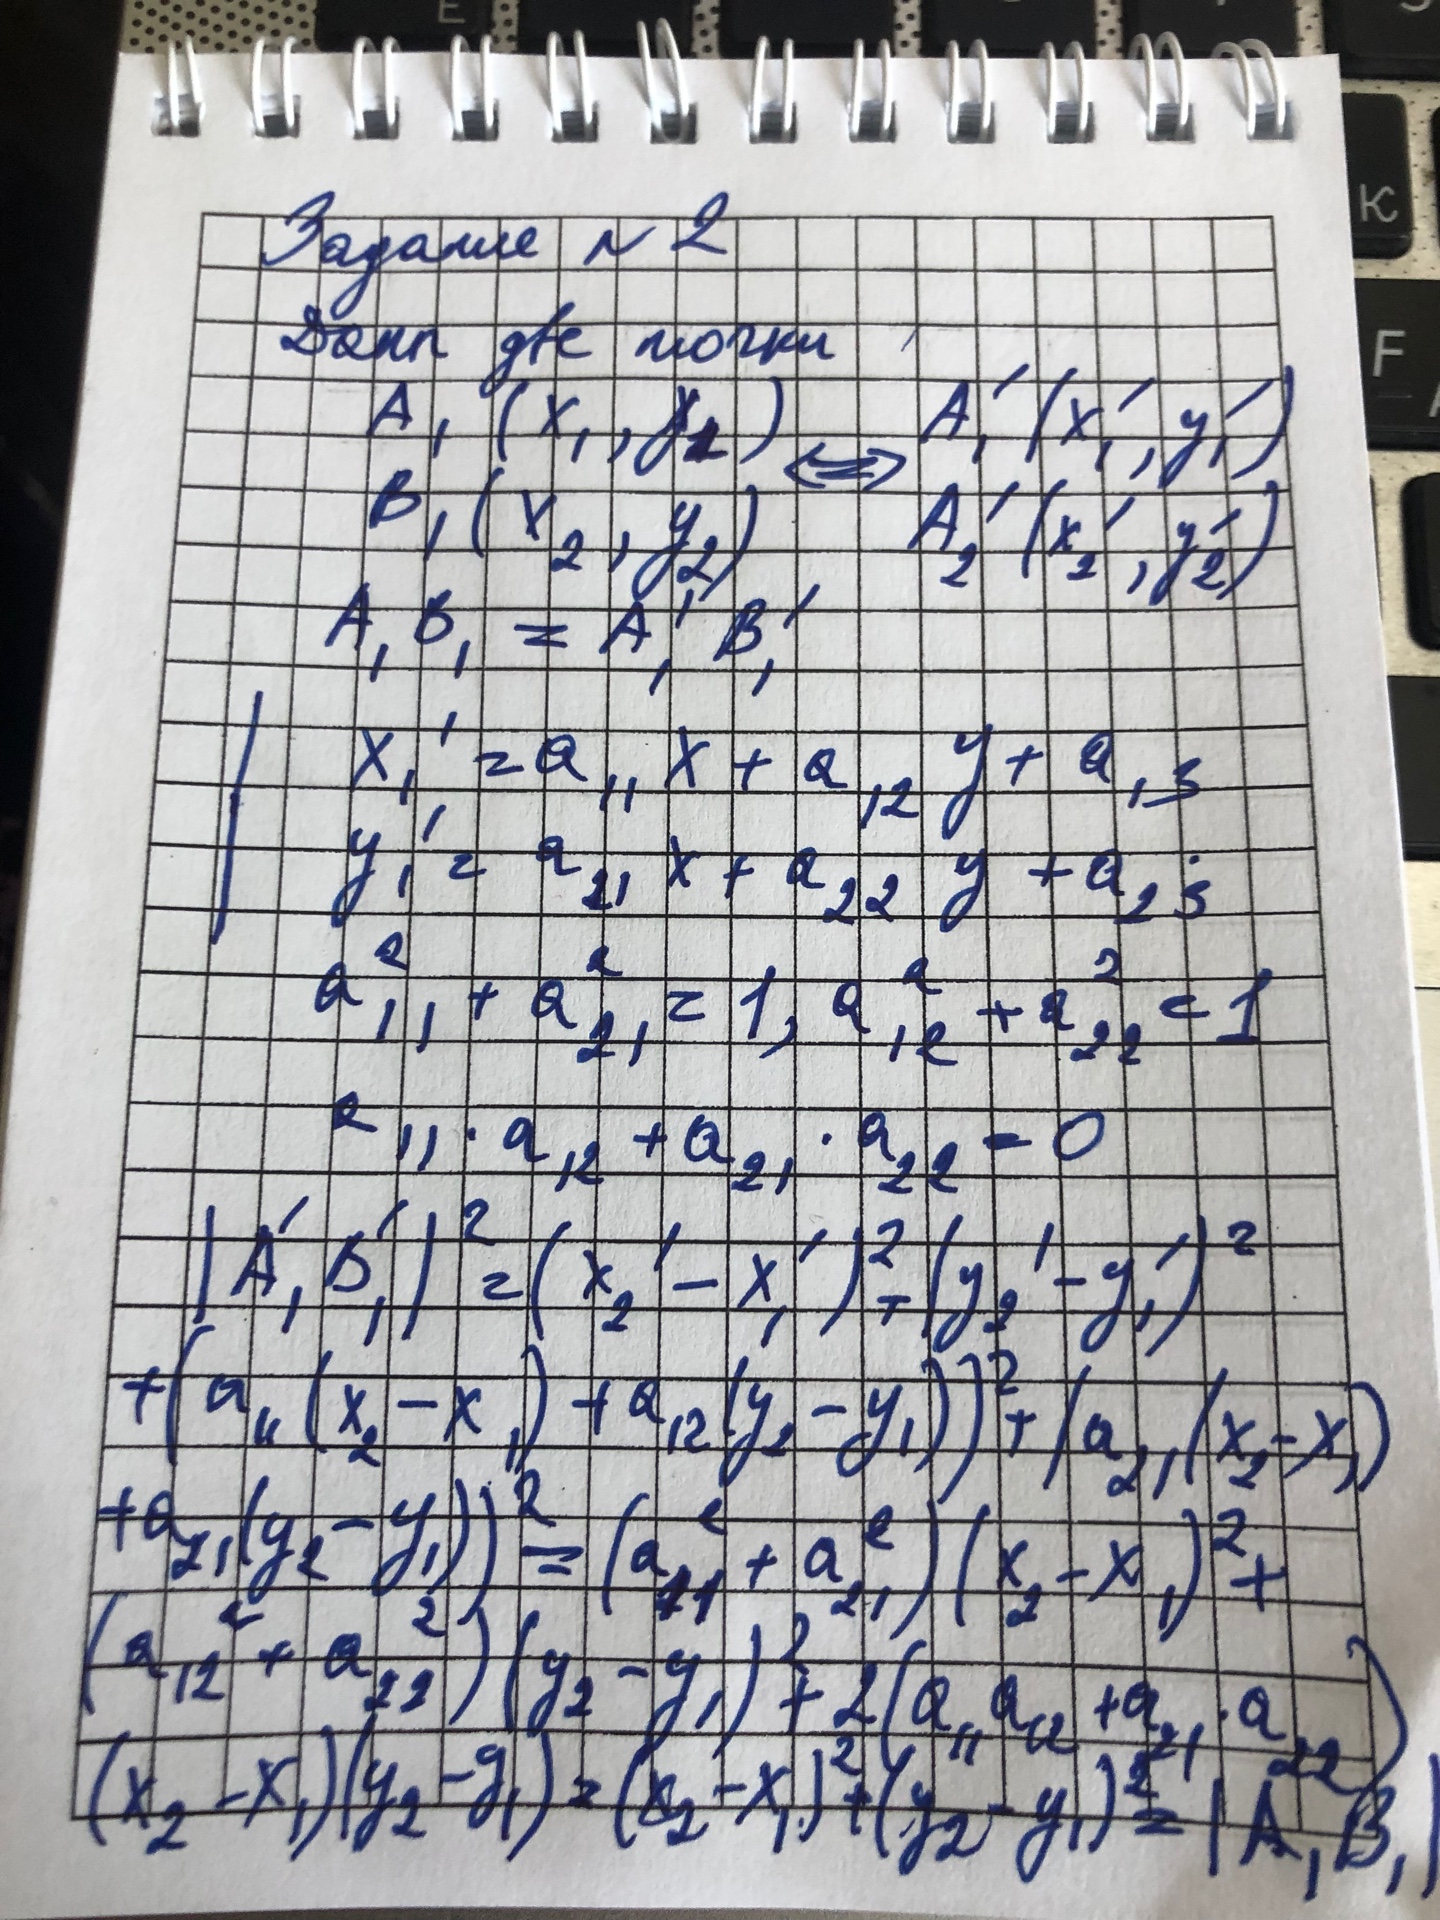 Задание № 2
Дани две точки
A₁(x₁, y₁) ⟺ A₁'(x₁', y₁')
B₁(x₂, y₂) A₂'(x₂', y₂')
A₁B₁ = A₁'B₁'
x₁' = a₁₁x + a₁₂y + a₁₃
y₁' = a₂₁x + a₂₂y + a₂₃
a₁₁² + a₂₁² = 1, a₁₂² + a₂₂² = 1
a₁₁ · a₁₂ + a₂₁ · a₂₂ = 0
|A₁'B₁'|² = (x₂' − x₁')² + (y₂' − y₁')²
+(a₁₁(x₂ − x₁) + a₁₂(y₂ − y₁))² + (a₂₁(x₂ − x₁)
+a₂₁(y₂ − y₁))² = (a₁₁² + a₂₁²)(x₂ − x₁)² +
(a₁₂² + a₂₂²)(y₂ − y₁)² + 2(a₁₁a₁₂ + a₂₁ · a₂₂)
(x₂ − x₁)(y₂ − y₁) = (x₂ − x₁)² + (y₂ − y₁)² = |A₁B₁|
E
K
F